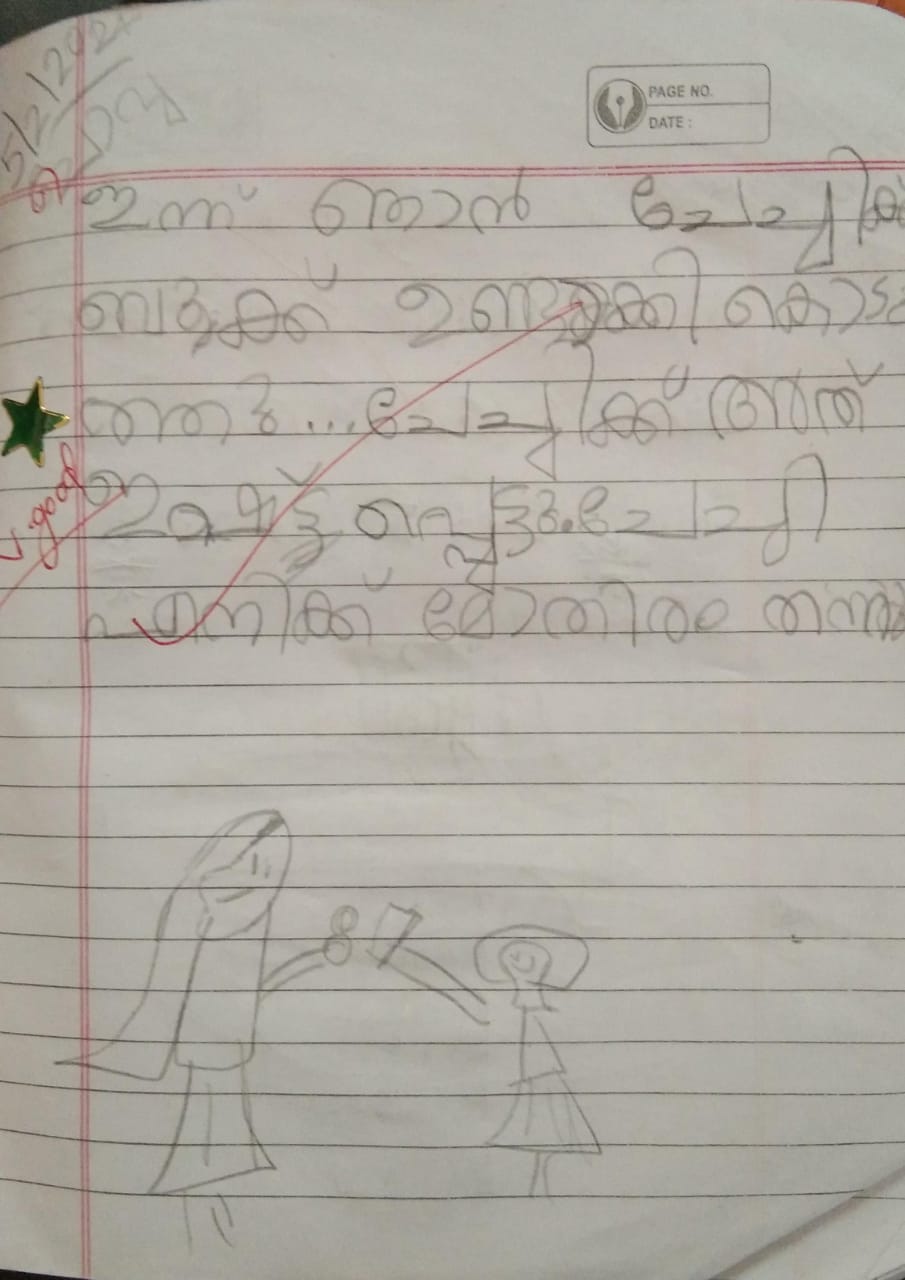 5/2/202
PAGE NO.
DATE :
ഇന്ന് ഞാൻ ചേച്ചിക്ക്
ബുക്ക് ഉണ്ടാക്കി കൊടു
ത്തു... ചേച്ചിക്ക് അത്
ഇഷ്ട്ട പ്പെട്ടു. ചേച്ചി
എനിക്ക് മോതിരം തന്നു
v.good